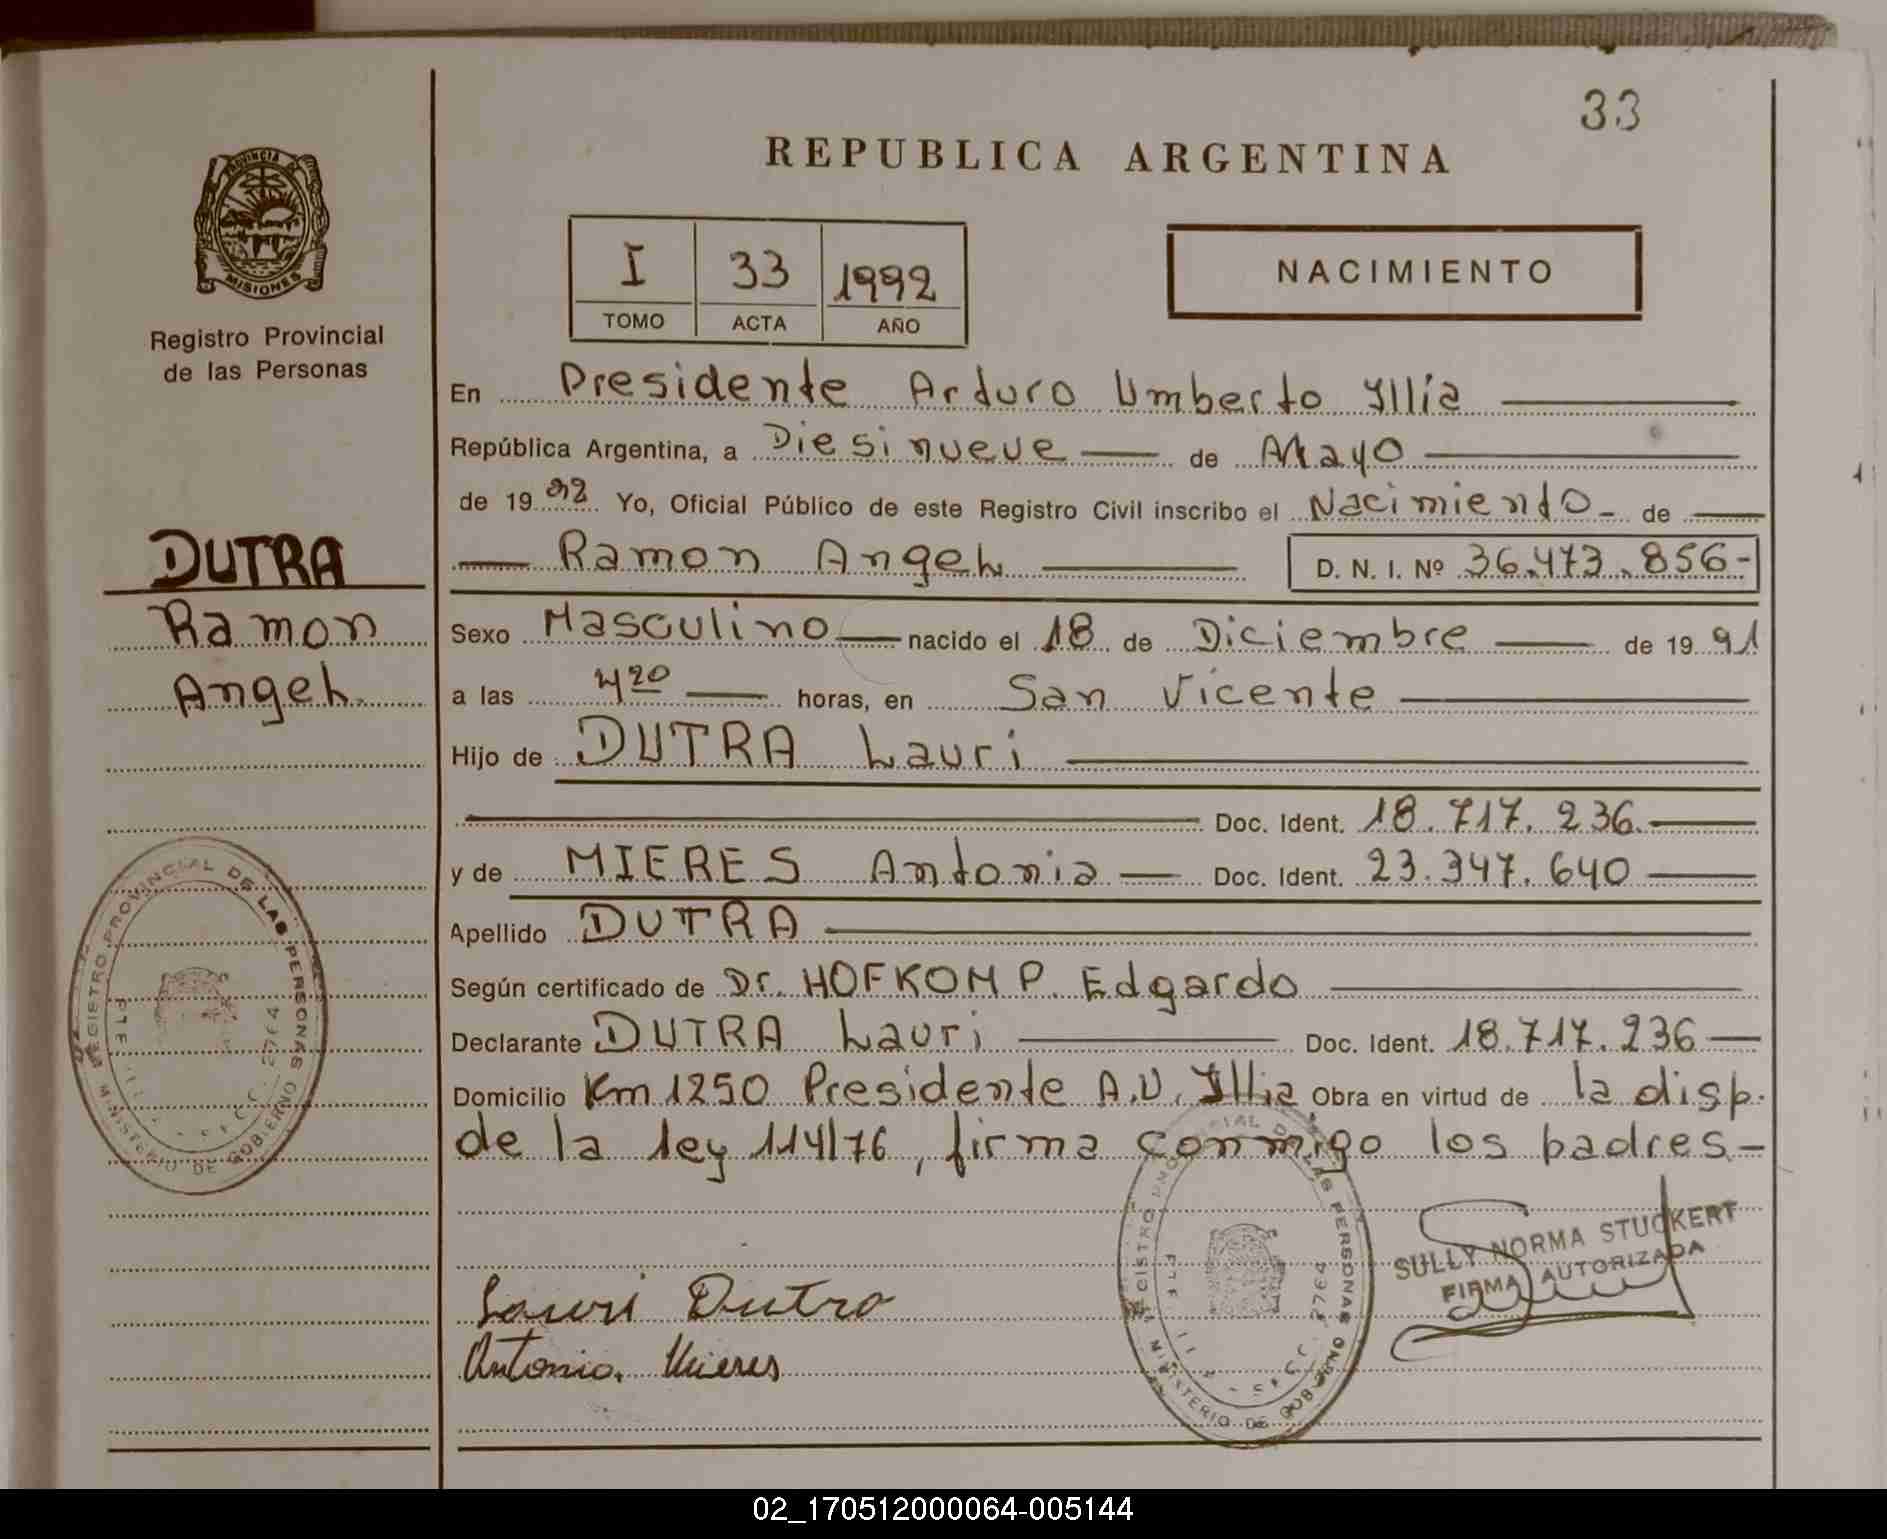 33
REPUBLICA ARGENTINA
PROVINCIA DE MISIONES
Registro Provincial
de las Personas
I 33 1992
TOMO ACTA AÑO
NACIMIENTO
En Presidente Arturo Umberto Illia
República Argentina, a Diesinueve de Mayo
de 19 92 Yo, Oficial Público de este Registro Civil inscribo el Nacimiento de
Ramon Angel D. N. I. Nº 36.473.856-
DUTRA
Ramon
Angel.
Sexo Masculino nacido el 18 de Diciembre de 19 91
a las 4 20 horas, en San Vicente
Hijo de DUTRA Lauri
Doc. Ident. 18.717.236.
y de MIERES Antonia Doc. Ident. 23.347.640
Apellido DUTRA
Según certificado de Dr. HOFKOMP Edgardo
Declarante DUTRA Lauri Doc. Ident. 18.717.236
Domicilio Km 1250 Presidente A.U. Illia Obra en virtud de la disp.
de la ley 114/76, firma conmigo los padres.-
REGISTRO PROVINCIAL DE LAS PERSONAS
MINISTERIO DE GOBIERNO
REGISTRO PROVINCIAL DE LAS PERSONAS
MINISTERIO DE GOBIERNO
SULLY NORMA STUCKERT
FIRMA AUTORIZADA
Lauri Dutra
Antonia Mieres
02_170512000064-005144